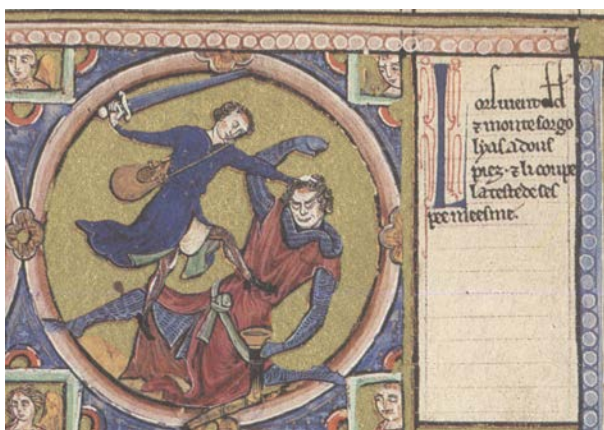 Lors uient dd
⁊ monte sor go
lyas a dous
piez · ⁊ li coupe
la teste de ses
pee meesme.